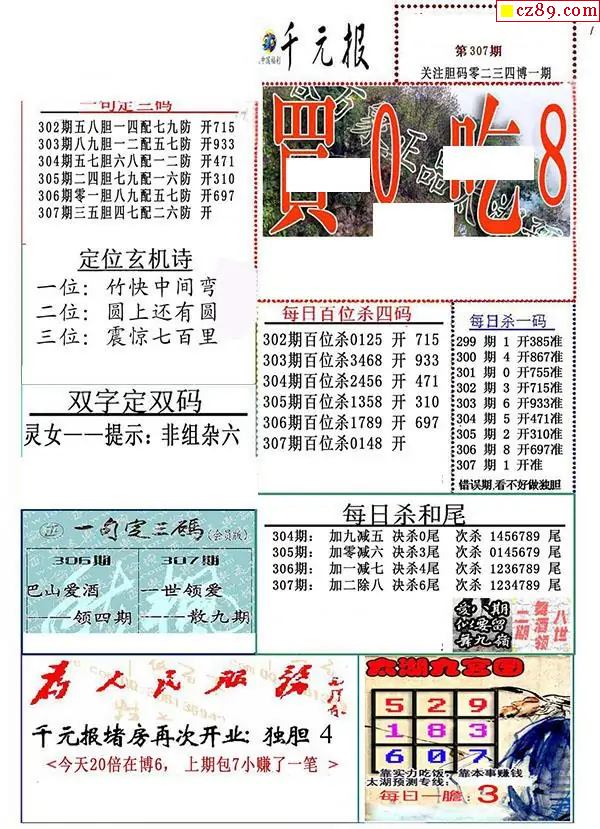 cz89.com
千元报
第307期
关注胆码零二三四博一期
一句定三码
302期五八胆一四配七九防 开715
303期八九胆一二配五七防 开933
304期五七胆六八配一二防 开471
305期二四胆七九配一六防 开310
306期零一胆八九配五七防 开697
307期三五胆四七配二六防 开
買0吃8
定位玄机诗
一位：竹快中间弯
二位：圆上还有圆
三位：震惊七百里
每日百位杀四码
302期百位杀0125 开 715
303期百位杀3468 开 933
304期百位杀2456 开 471
305期百位杀1358 开 310
306期百位杀1789 开 697
307期百位杀0148 开
每日杀一码
299 期 1 开385准
300 期 4 开867准
301 期 0 开755准
302 期 3 开715准
303 期 6 开933准
304 期 5 开471准
305 期 2 开310准
306 期 8 开697准
307 期 1 开准
错误期,看不好做独胆
双字定双码
灵女——提示：非组杂六
每日杀和尾
304期： 加九减五 决杀0尾 次杀 1456789 尾
305期： 加零减六 决杀3尾 次杀 0145679 尾
306期： 加一减七 决杀4尾 次杀 1236789 尾
307期： 加二除八 决杀6尾 次杀 1234789 尾
一句定三碼(会员版)
306期
巴山爱酒
——领四期
307期
一世领爱
——散九期
八世
舞酒领
二期
为人民服务
千元报堵房再次开业：独胆 4
<今天20倍在博6， 上期包7小赚了一笔 >
太湖九宫图
5 2 9
1 8 3
6 0 7
靠实力吃饭，靠本事赚钱
太湖预测专线：
每日一膽：3